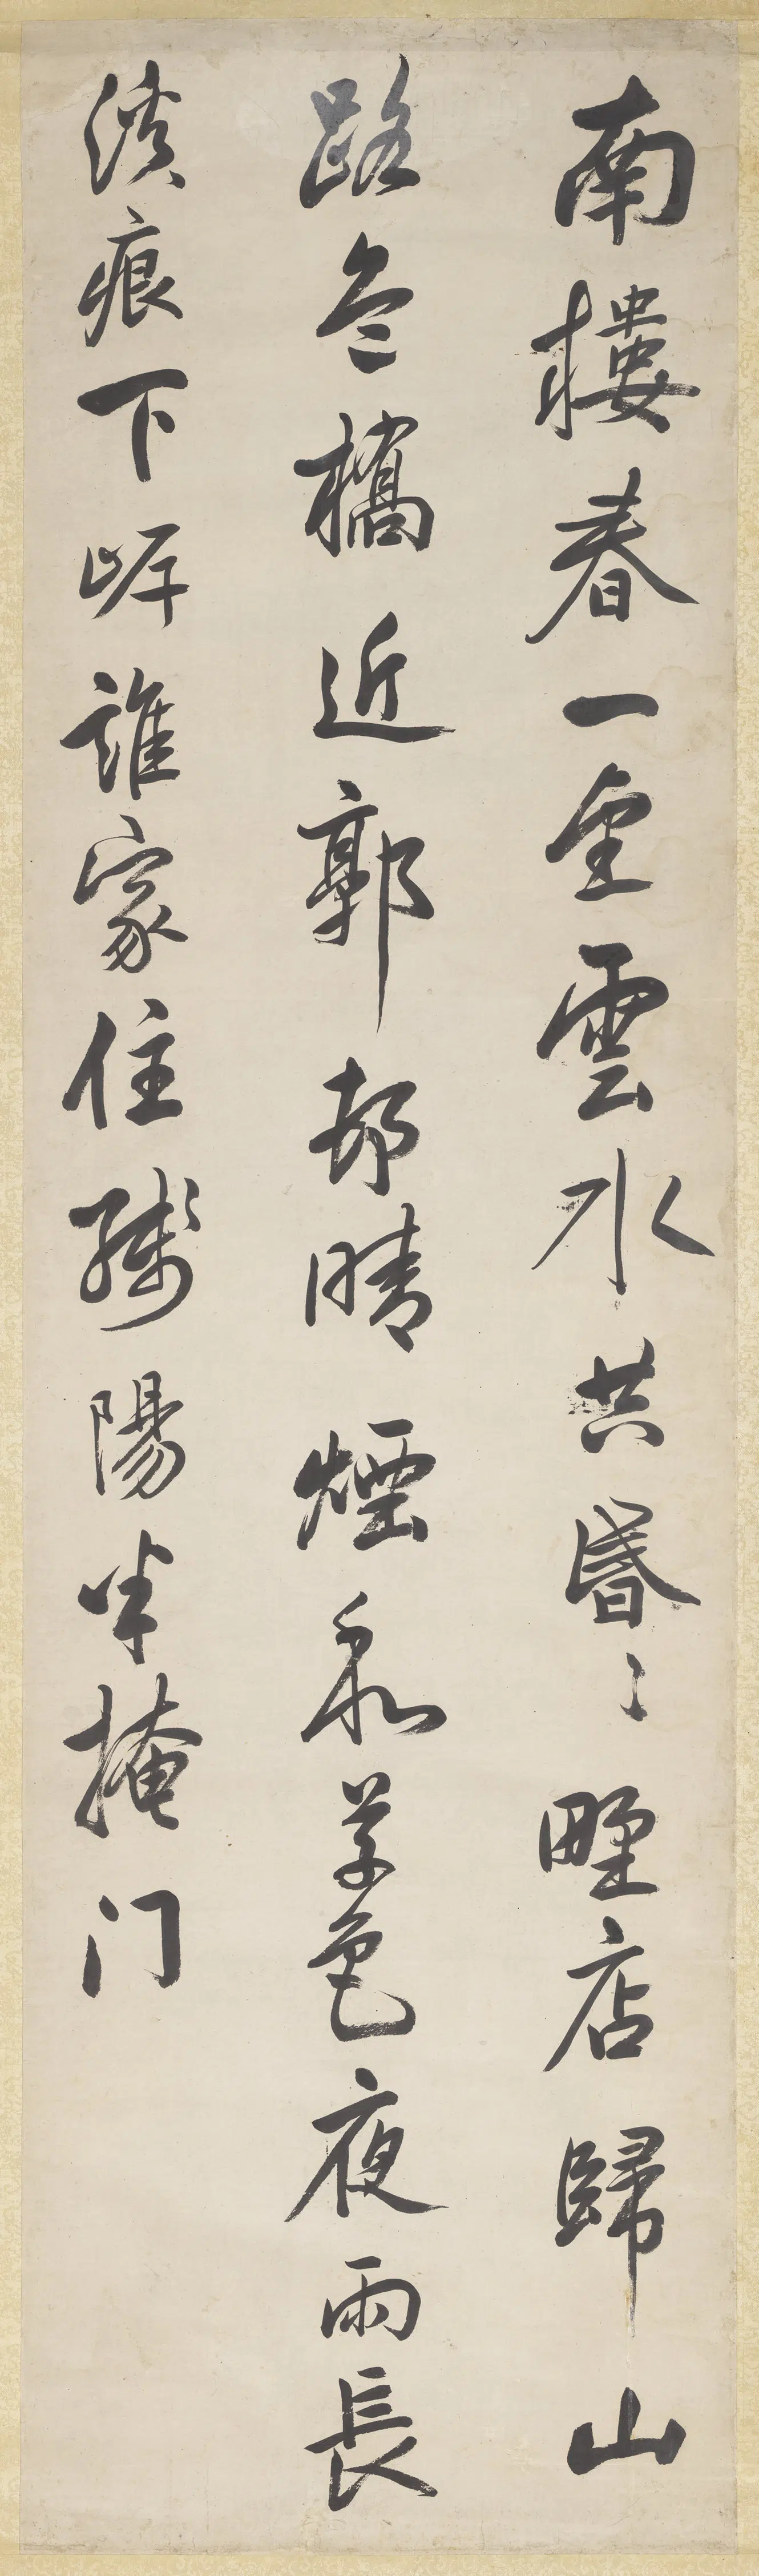 南樓春一望雲水共昬〻野店歸山
路危橋近郭邨晴煙和草色夜雨長
溪痕下岸誰家住殘陽半掩门